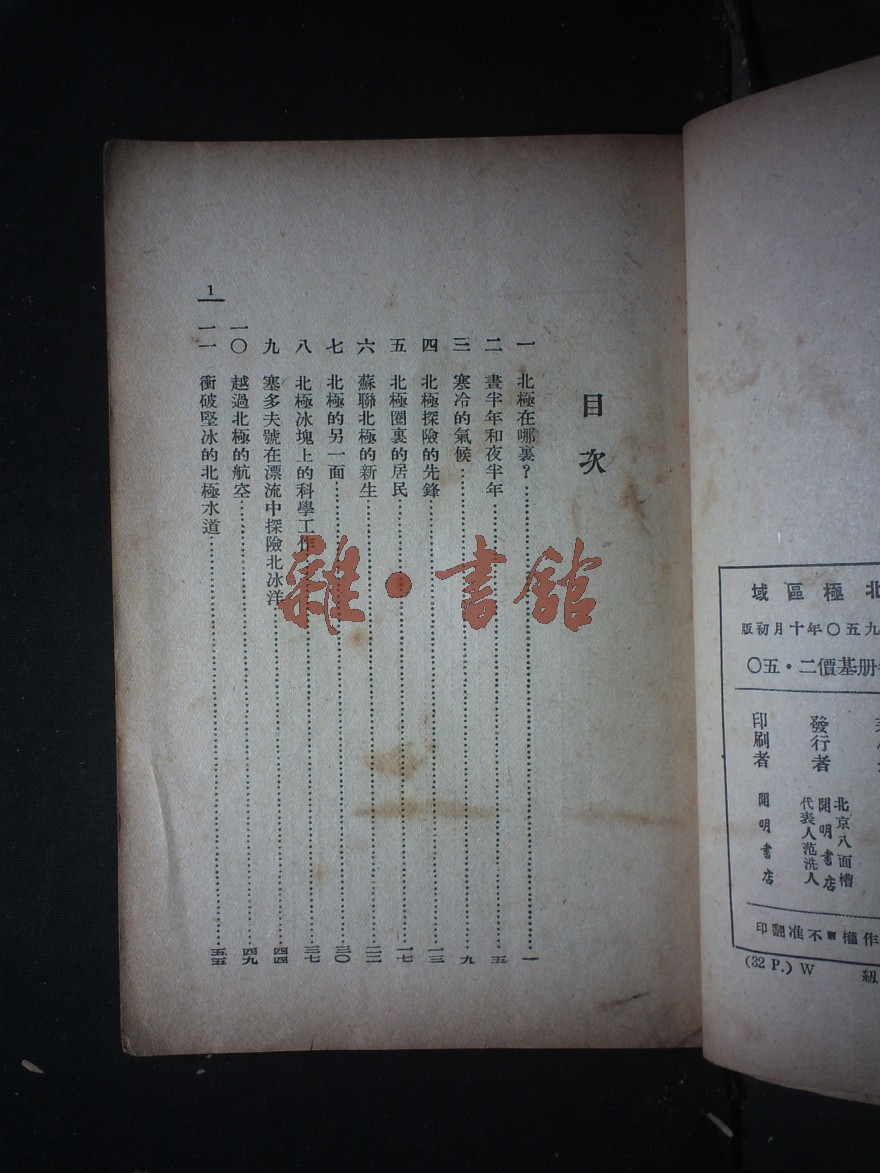 北極區域
九五〇年十月初版
册基價二・五〇
發行者
北京八面槽
開明書店
代表人范洗人
印刷者
開明書店
作權
不准翻印
(32 P.) W
級
目次
一 北極在哪裏?……一
二 晝半年和夜半年……五
三 寒冷的氣候……九
四 北極探險的先鋒……一三
五 北極圈裏的居民……一七
六 蘇聯北極的新生……二二
七 北極的另一面……三〇
八 北極冰塊上的科學工作……三七
九 塞多夫號在漂流中探險北冰洋……四四
一〇 越過北極的航空……四九
一一 衝破堅冰的北極水道……五五
1
雜・書館